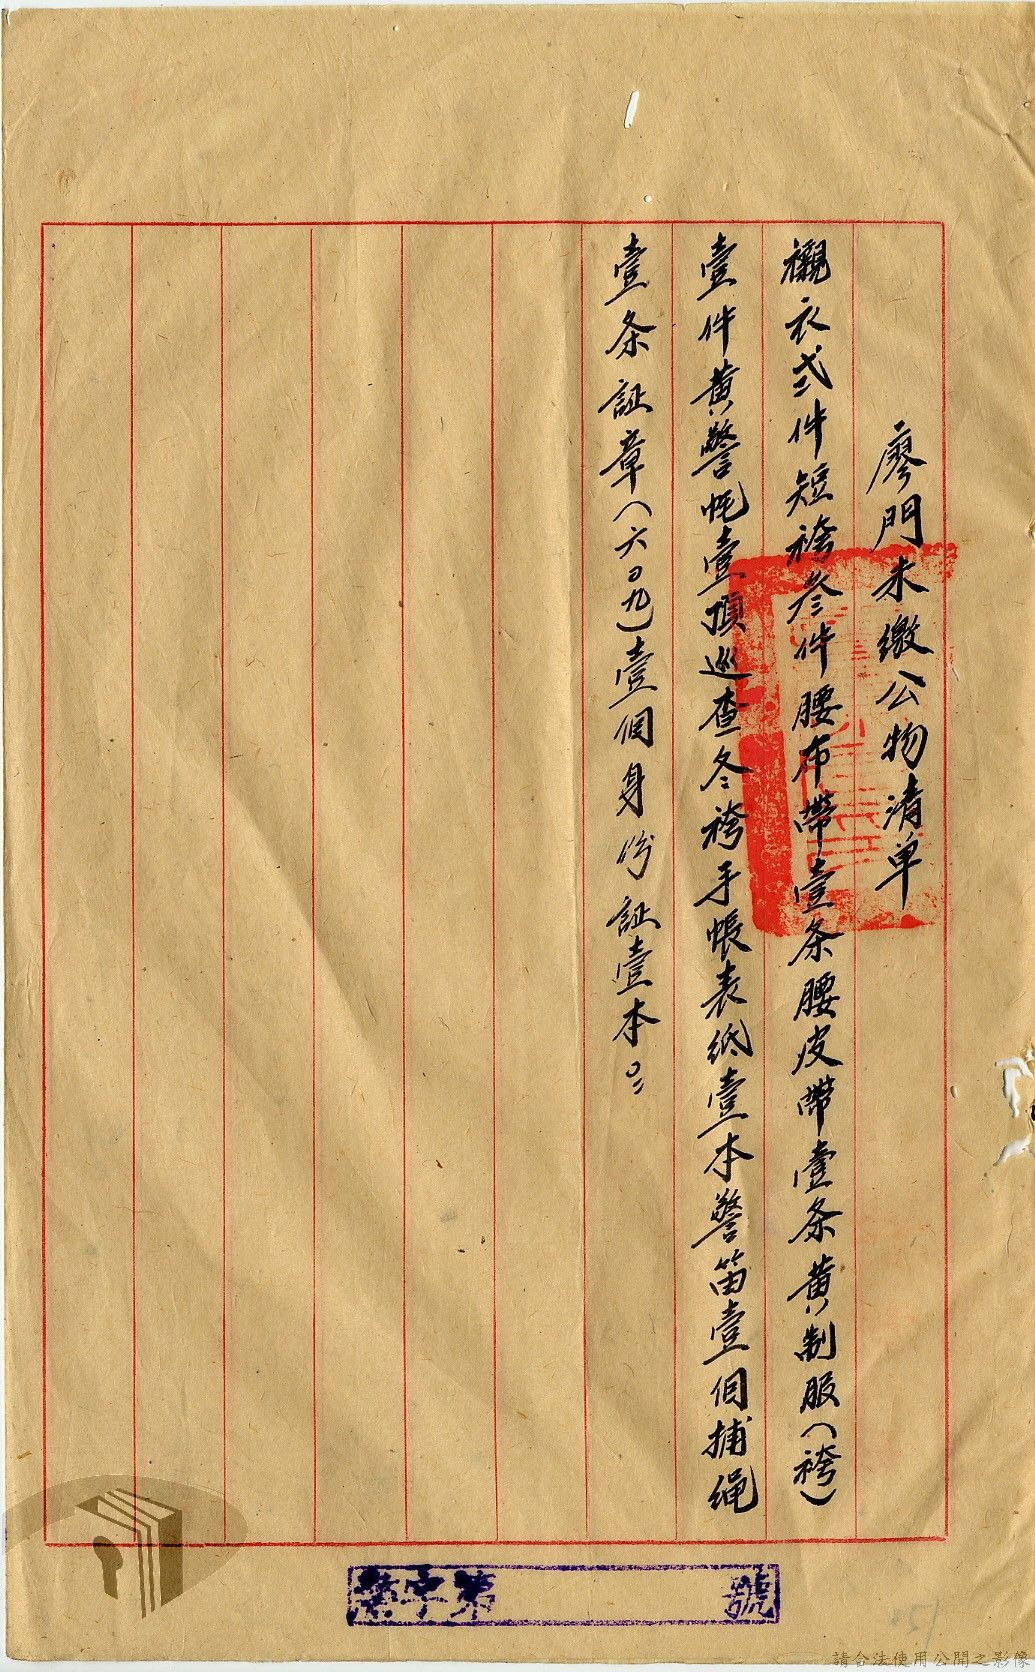 廖門未繳公物清单
襯衣弍件短袴叄件腰布帶壹条腰皮帶壹条黄制服(袴)
壹件黄警帽壹頂巡查冬袴手帳表紙壹本警笛壹個捕繩
壹条証章(六0九)壹個身份証壹本。
字第 號
請合法使用公開之影像